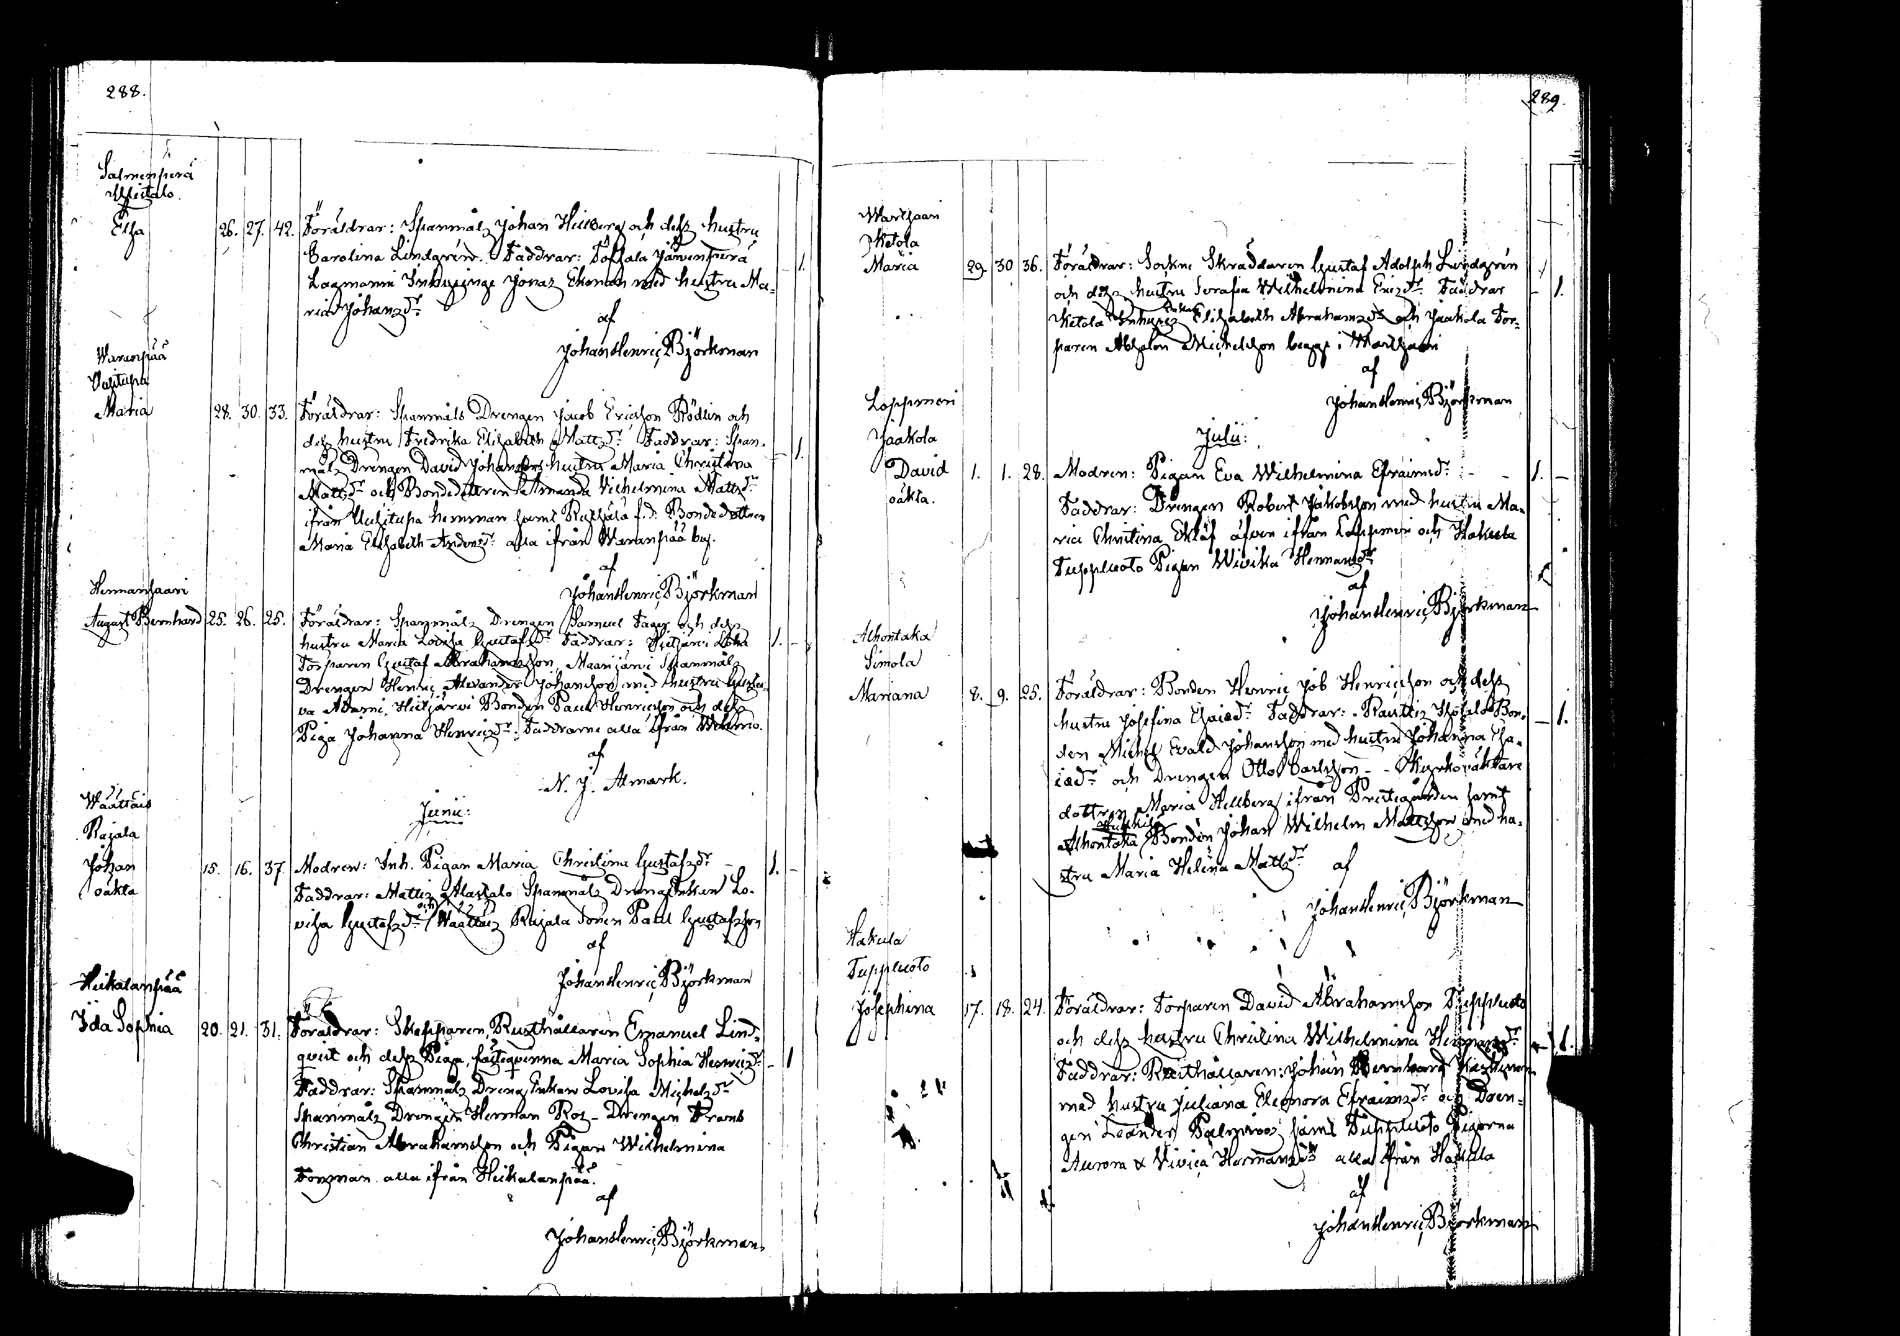 288.
Salmenperä
Elsa 26. 27. 42. Föräldrar: Spanmåls Johan Hellberg och dess hustru
Carolina Lindgrén. Faddrar: Jäwenperä
Lagmanni Jonas Ekman med hustru Ma-
ria Johansdr.
af
Johan Henric Björkman
Waranpää
Uusitupa
Maria 28. 30. 33. Föräldrar: Spanmåls Drengen Jacob Ericsson Rödlin och
dess hustru Fredrika Elisabeth Mattsdr. Faddrar: Span-
måls Drengen David Johanssons hustru Maria Christina
Mattsdr och Bondedottren Amanda Vilhelmina Mattsdr
ifrån Uusitupa hemman samt f.d. Bondedottren
Maria Elisabeth Andersdr alla ifrån Waranpää by.
af
Johan Henric Björkman
Hermansaari
August Bernhard 25. 26. 25. Föräldrar: Spanmåls Drengen Samuel Fager och dess
hustru Maria Lovisa Gustafsdr. Faddrar:
Torparen Gustaf Abrahamsson, Maanjärvi Spanmåls
Drengen Henric Alexander Johansson med hustru Gusta-
va Adami, Bonden Paul Henricsson och dess
Piga Johanna Henricsdr. Faddrarne alla ifrån
af
N. J. Almark.
Junii:
Wäättäis
Rajala
Johan 15. 16. 37. Modren: Inh. Pigan Maria Christina Gustafsdr 1.
oäkta
Faddrar: Mattis Alastalo Spanmåls Drengs Enkan Lo-
visa Gustafsdr och Wäättäis Rajala Sonen Paul Gustafsson
af
Johan Henric Björkman
Heikalanpää
Ida Sophia 20. 21. 31. Föräldrar: Skepparen, Rusthållaren Emanuel Lind-
qvist och dess Piga, fästeqvinna Maria Sophia Henricsdr 1
Faddrar: Spanmåls Drengs Enkan Lovisa Michelsdr
Spanmåls Drengen Herman Ros - Drengen Frans
Christian Abrahamsson och Pigan Wilhelmina
Forsman alla ifrån Heikalanpää.
af
Johan Henric Björkman.
289.
Ketola
Maria 29. 30 36. Föräldrar: Sockne Skräddaren Gustaf Adolph Lindgrén
och dess hustru Serafia Wilhelmina Ericsdr. Faddrar
Ketola Inhyses Enkan Elisabeth Abrahamsdr och Jaakola Tor-
paren Absalon Michelsson begge i
af
Johan Henric Björkman
Julii:
Loppmeri
Jaakola
David 1. 1. 28. Modren: Pigan Eva Wilhelmina Efraimsdr 1.
oäkta.
Faddrar: Drengen Robert Jakobsson med hustru Ma-
ria Christina Eklöf äfven ifrån Loppmeri och Hakula
Tuppluoto Pigan Wivika Hermansdr
af
Johan Henric Björkman
Ahontaka
Simola
Mariana 8. 9. 25. Föräldrar: Bonden Henric Job Henricsson och dess
hustru Josefina Esaiedr. Faddrar: Bon-
den Michel Evald Johansson med hustru Johanna Esa-
iedr och Drengen Otto Carlsson - Kyrkowäktare
dottren Maria Hellberg ifrån Prestegården samt
Ahontaka Bonden Johan Wilhelm Mattsson med hu-
stru Maria Helena Mattsdr af
Johan Henric Björkman
Hakula
Tuppluoto
Josephina 17. 18. 24. Föräldrar: Torparen David Abrahamsson Tuppluoto
och dess hustru Christina Wilhelmina Hermansdr 1.
Faddrar: Rusthållaren: Johan Bernhard
med hustru Juliana Eleonora Efraimsdr och Dren-
gen Leander Palmroos samt Tuppluoto Pigorna
Aurora & Vivica Hermansdr alla ifrån Hakula
af
Johan Henric Björkman